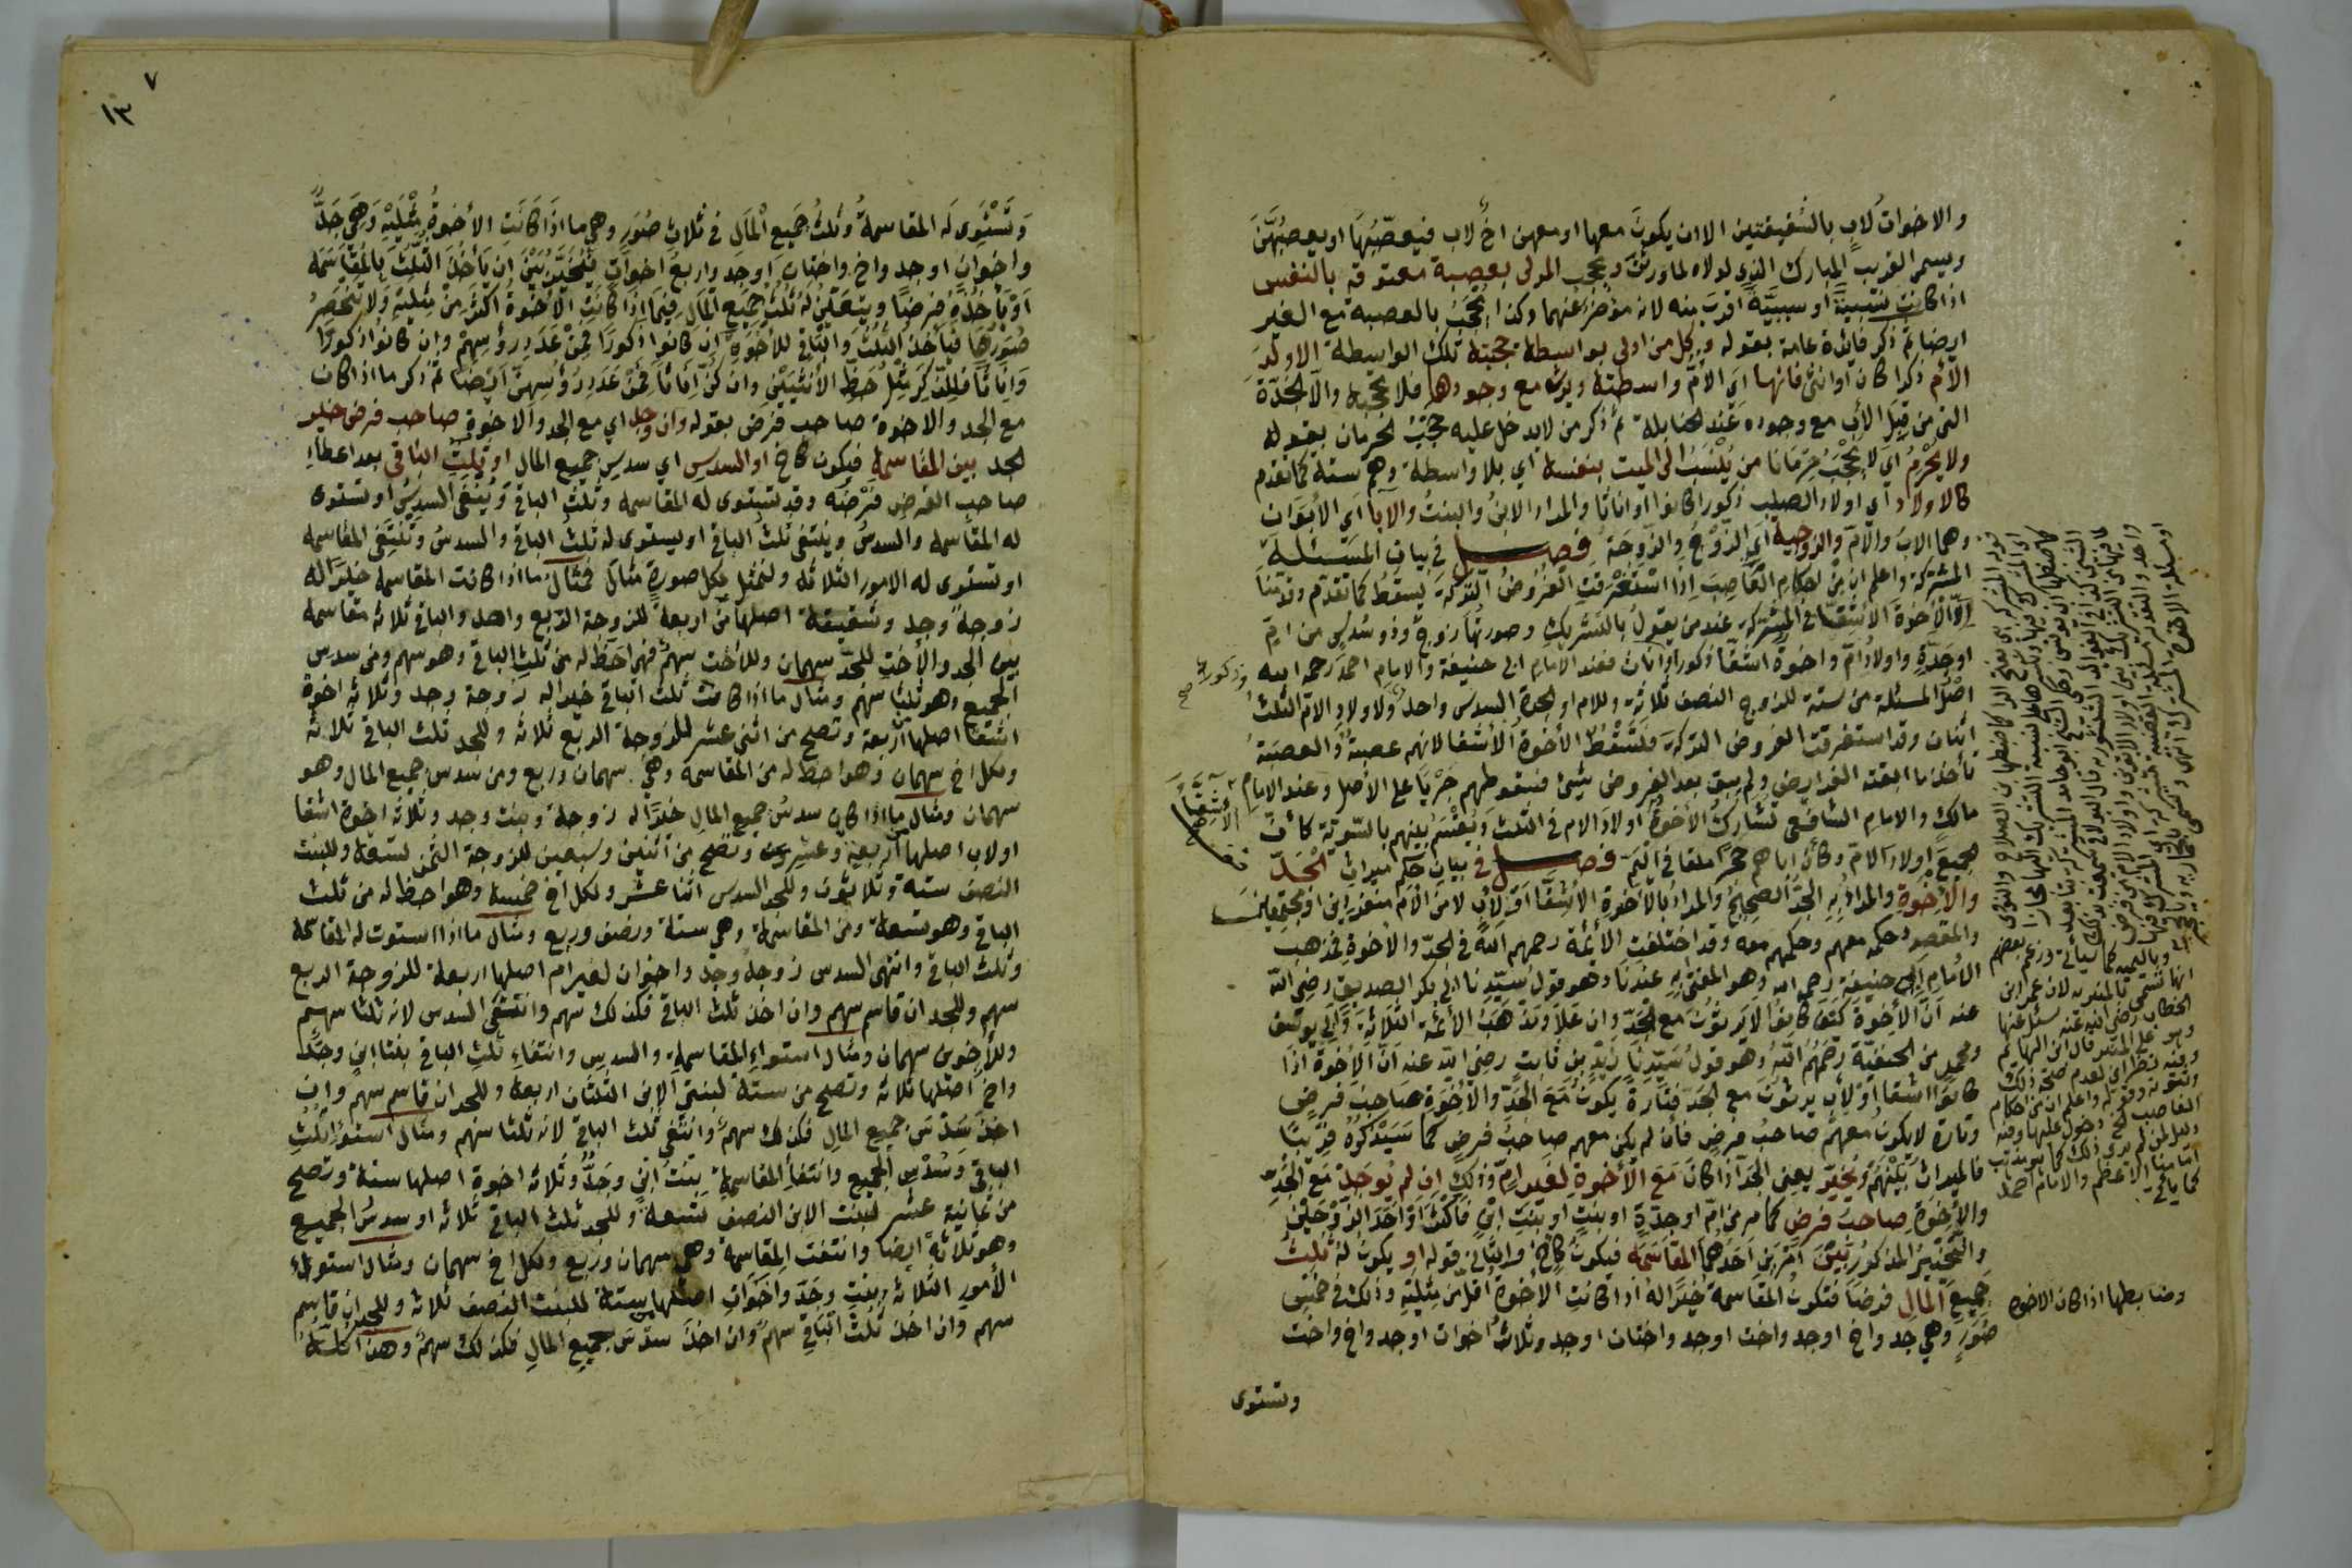 والاخوات لاب بالشقيقتين الا ان يكون معها او معهن اخ لاب فيعصبها او يعصبهن
ويسمى القريب المبارك الذي لولاه لما ورثت ويحجب المولى بعصبة معتوقه بالنفس
اذا كانت نسبية او سببية اقرب منه لانه مؤخر عنهما وكذا يحجب بالعصبة مع الغير
ايضا ثم ذكر فائدة عامة بقوله وكل من ادلى بواسطة حجبته تلك الواسطة الا ولد
الام ذكرا كان او انثى فانها اي الام واسطته ويرث مع وجودها فلا تحجبه والا الجدة
التي من قبل الاب مع وجوده عند الحنابلة ثم ذكر من لا يدخل عليه حجب الحرمان بقوله
ولا يحرم اي لا يحجب حرمانا من ينسب الى الميت بنفسه اي بلا واسطة وهم ستة كما تقدم
كالاولاد اي اولاد الصلب ذكورا كانوا او اناثا والمراد الابن والبنت والآبا اي الابوان
وهما الاب والام والزوجية اي الزوج والزوجة فصل في بيان المسئلة
المشتركة واعلم ان من احكام العاصب اذا استغرقت الفروض التركة يسقط كما تقدم
الا الاخوة الاشقا في المشتركة عند من يقول بالتشريك وصورتها زوج وذو سدس من ام
او جدة واولاد ام واخوة اشقا ذكورا واناث فعند الامام ابي حنيفة والامام احمد رحمهما الله
اصل المسئلة من ستة للزوج النصف ثلاثة وللام او الجدة السدس واحد ولاولاد الام الثلث
اثنان وقد استغرقت الفروض التركة فتسقط الاخوة الاشقا لانهم عصبة والعصبة
تأخذ ما ابقته الفرايض ولم يبق بعد الفروض شيئ فسقوطهم جريا على الاصل وعند الامام
مالك والامام الشافعي تشارك الاخوة اولاد الام في الثلث ويقسم بينهم بالسوية كأن
جميع اولاد الام وكأن اباهم حجرا ملقا في اليم فصل في بيان حكم ميراث الجد
والاخوة والمراد به الجد الصحيح والمراد بالاخوة الاشقا او لاب لا من الام منفردين او مجتمعين
والمقصود حكمه معهم وحكمهم معه وقد اختلفت الائمة رحمهم الله في الجد والاخوة فمذهب
الامام ابي حنيفة رحمه الله وهو المفتى به عندنا وهو قول سيدنا ابي بكر الصديق رضي الله
عنه ان الاخوة كيف كانوا لا يرثون مع الجد وان علا ومذهب الائمة الثلاثة وابي يوسف
ومحمد من الحنفية رحمهم الله وهو قول سيدنا زيد بن ثابت رضي الله عنه ان الاخوة اذا
كانوا اشقا او لاب يرثون مع الجد فتارة يكون مع الجد والاخوة صاحب فرض
وتارة لا يكون معهم صاحب فرض فان لم يكن معهم صاحب فرض كما سيذكره قريبا
فالميراث بينهم ويخير يعني الجد اذا كان مع الاخوة لغير ام وذلك ان لم يوجد مع الجد
والاخوة صاحب فرض كما مر من ام او جدة او بنت او بنت ابن فاكثر او احد الزوجين
والتخيير المذكور بين امرين احدهما المقاسمة فيكون كاخ والثاني قوله او يكون له ثلث
جميع المال فرضا فتكون المقاسمة خيرا له اذا كانت الاخوة اقل من مثليه وذلك في خمس
صور وهي جد واخ او جد واخت او جد واختان او جد وثلاث اخوات او جد واخ واخت
وتستوى
وضابطها اذا كان الاخوة
١٣
٧
وتستوى له المقاسمة وثلث جميع المال في ثلاث صور وهي ما اذا كانت الاخوة مثليه وهي جد
واخوان او جد واخ واختان او جد واربع اخوات فيخير بين ان يأخذ الثلث بالمقاسمة
او يأخذه فرضا ويتعين له ثلث جميع المال فيما اذا كانت الاخوة اكثر من مثليه ولا تنحصر
صورها فيأخذ الثلث والباقي للاخوة ان كانوا ذكورا فمن عدد رؤسهم وان كانوا ذكورا
واناثا فللذكر مثل حظ الانثيين وان كن اناثا فمن عدد رؤسهن ايضا ثم ذكر ما اذا كان
مع الجد والاخوة صاحب فرض بقوله وان وجد اي مع الجد والاخوة صاحب فرض خير
الجد بين المقاسمة فيكون كاخ او السدس اي سدس جميع المال او ثلث الباقي بعد اعطاء
صاحب الفرض فرضه وقد تستوى له المقاسمة وثلث الباقي وينتفى السدس او تستوى
له المقاسمة والسدس وينتفى ثلث الباقي او يستوى له ثلث الباقي والسدس وتنتفى المقاسمة
او تستوى له الامور الثلاثة ولنمثل لكل صورة مثال فمثال ما اذا كانت المقاسمة خيرا له
زوجة وجد وشقيقة اصلها من اربعة للزوجة الربع واحد والباقي ثلاثة مقاسمة
بين الجد والاخت للجد سهمان وللاخت سهم فهو احظ له من ثلث الباقي وهو سهم ومن سدس
الجميع وهو ثلثا سهم ومثال ما اذا كانت ثلث الباقي خيرا له زوجة وجد وثلاثة اخوة
اشقا اصلها اربعة وتصح من اثنى عشر للزوجة الربع ثلاثة وللجد ثلث الباقي ثلاثة
ولكل اخ سهمان وهو احظ له من المقاسمة وهي سهمان وربع ومن سدس جميع المال وهو
سهمان ومثال ما اذا كان سدس جميع المال خيرا له زوجة وبنت وجد وثلاثة اخوة اشقا
او لاب اصلها اربعة وعشرون وتصح من اثنين وسبعين للزوجة الثمن تسعة وللبنت
النصف ستة وثلاثون وللجد السدس اثنا عشر ولكل اخ خمسة وهو احظ له من ثلث
الباقي وهو تسعة ومن المقاسمة وهي ستة ونصف وربع ومثال ما اذا استوت له المقاسمة
وثلث الباقي وانتهى السدس زوجة وجد واخوان لغير ام اصلها اربعة للزوجة الربع
سهم وللجد ان قاسم سهم وان اخذ ثلث الباقي فكذلك سهم وانتفى السدس لانه ثلثا سهم
وللاخوين سهمان ومثال استواء المقاسمة والسدس وانتفاء ثلث الباقي بنتا ابن وجد
واخ اصلها ثلاثة وتصح من ستة لبنتي الابن الثلثان اربعة وللجد ان قاسم سهم وان
اخذ سدس جميع المال فكذلك سهم وانتفى ثلث الباقي لانه ثلثا سهم ومثال استوا ثلث
الباقي وسدس الجميع وانتفأ المقاسمة بنت ابن وجد وثلاثة اخوة اصلها ستة وتصح
من ثمانية عشر لبنت الابن النصف تسعة وللجد ثلث الباقي ثلاثة او سدس الجميع
وهو ثلاثة ايضا وانتفت المقاسمة وهي سهمان وربع ولكل اخ سهمان ومثال استواء
الامور الثلاثة بنت وجد واخوات اصلها ستة للبنت النصف ثلاثة وللجد ان قاسم
سهم وان اخذ ثلث الباقي سهم وان اخذ سدس جميع المال فكذلك سهم وهذا كله